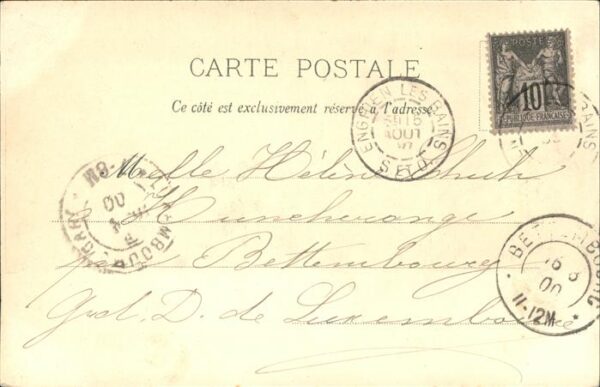 POSTE
10
REPUBLIQUE FRANÇAISE
CARTE POSTALE
Ce côté est exclusivement réservé à l'adresse
ENGHIEN LES BAINS
16
AOUT
S. ET O.
BAINS
Melle Hélène Schutz
Huncherange
par Bettembourg
Gd. D. de Luxembourg
00
BETTEMBOURG
16 8
00
11-12M